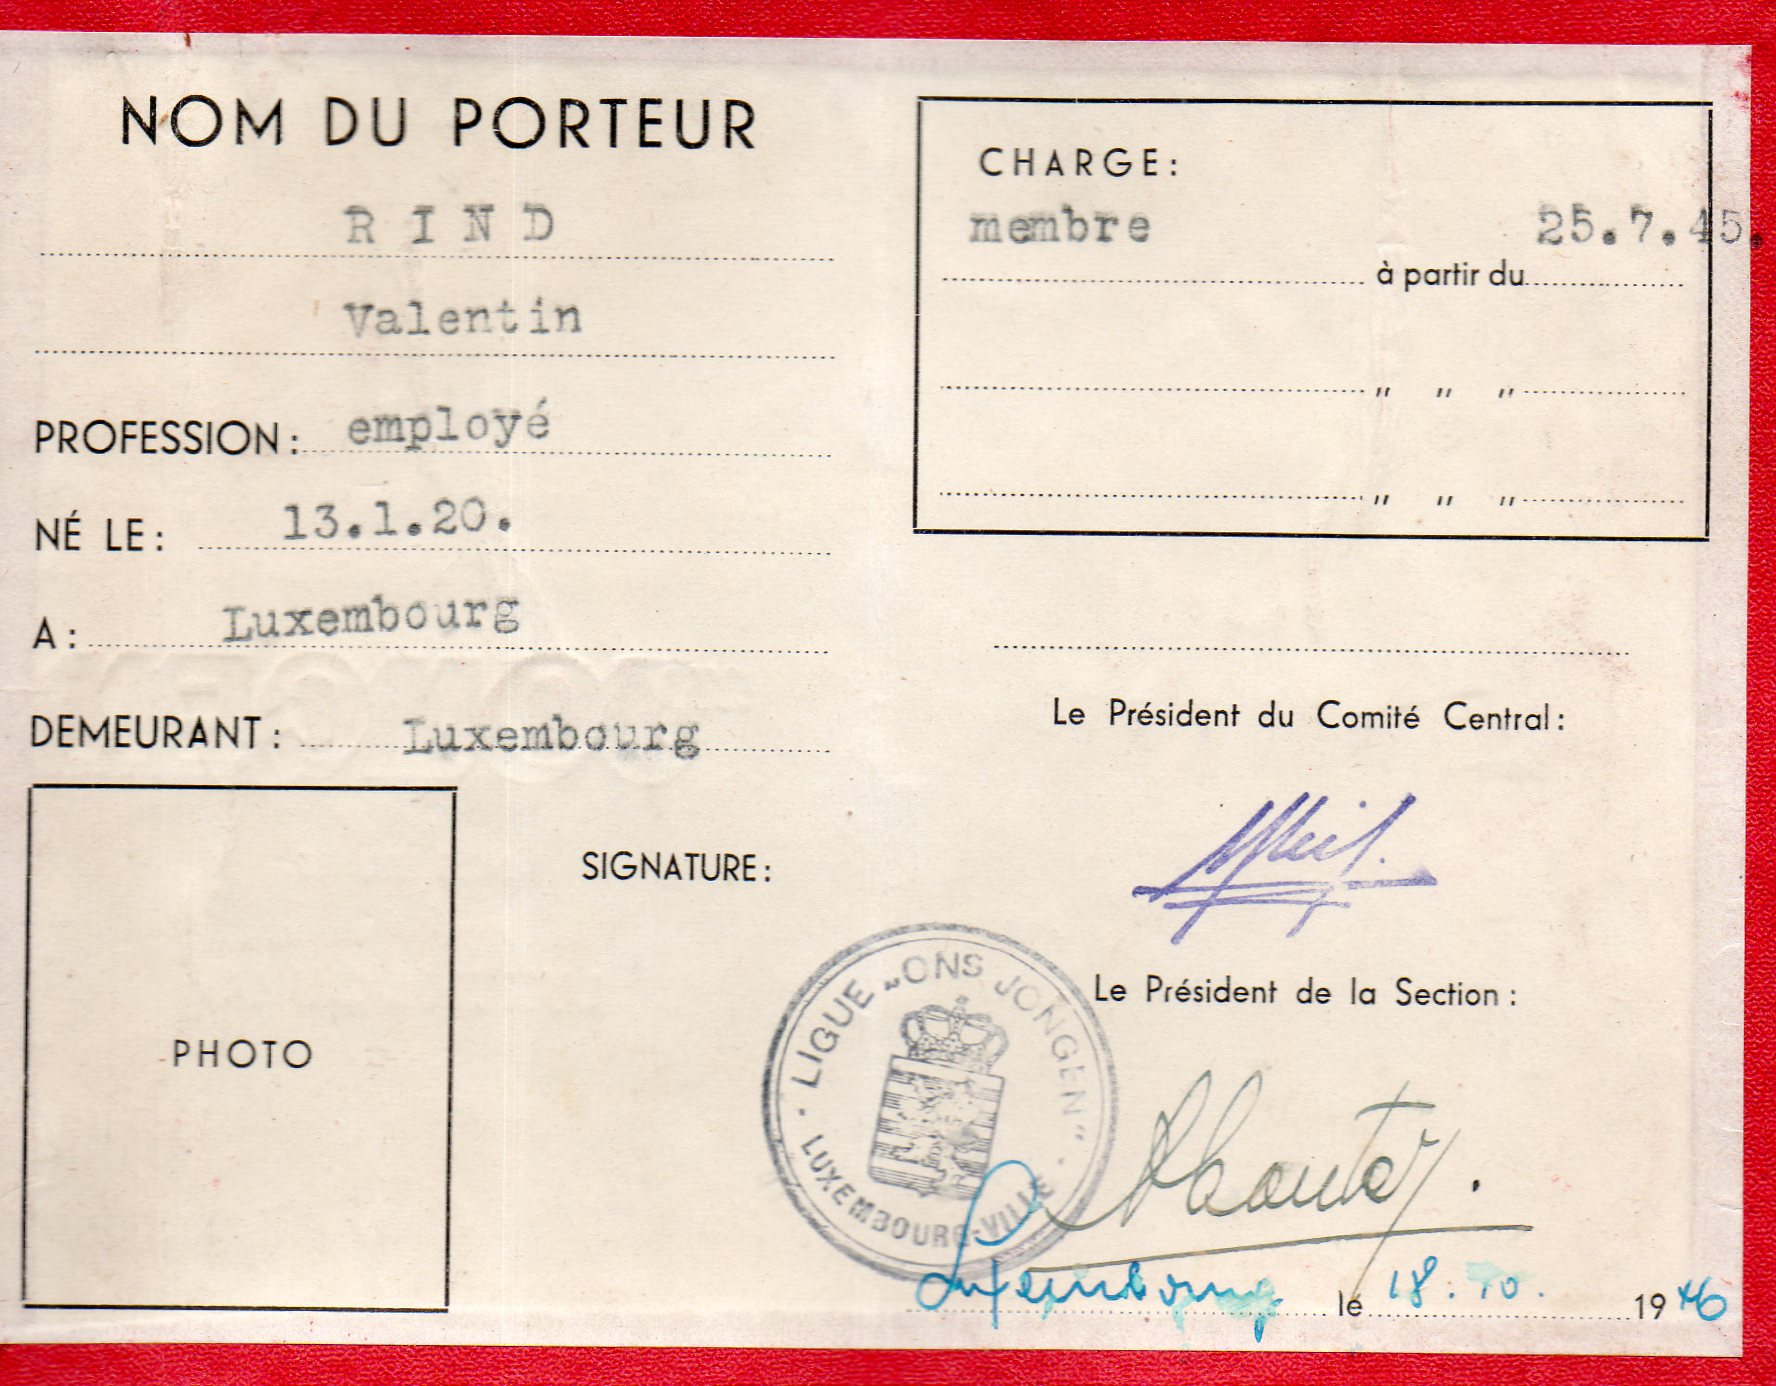 NOM DU PORTEUR
RIND
Valentin
PROFESSION: employé
NÉ LE: 13.1.20.
A: Luxembourg
DEMEURANT: Luxembourg
PHOTO
SIGNATURE:
CHARGE:
membre à partir du 25.7.45.
" " "
" " "
Le Président du Comité Central:
Le Président de la Section:
LIGUE „ONS JONGEN"
LUXEMBOURG-VILLE
Luxembourg le 18.10. 1946